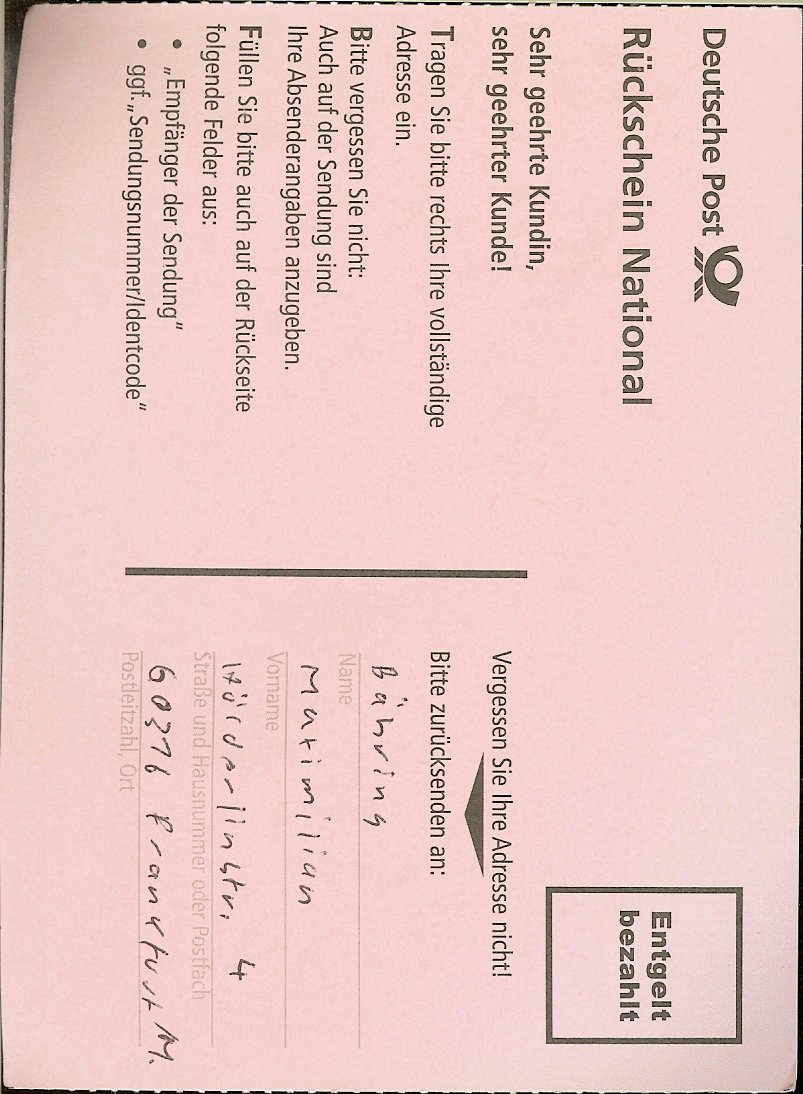 Deutsche Post
Rückschein National
Entgelt
bezahlt
Sehr geehrte Kundin,
sehr geehrter Kunde!
Tragen Sie bitte rechts Ihre vollständige
Adresse ein.
Bitte vergessen Sie nicht:
Auch auf der Sendung sind
Ihre Absenderangaben anzugeben.
Füllen Sie bitte auch auf der Rückseite
folgende Felder aus:
• „Empfänger der Sendung"
• ggf. „Sendungsnummer/Identcode"
Vergessen Sie Ihre Adresse nicht!
Bitte zurücksenden an:
Bähring
Name
Maximilian
Vorname
4
Straße und Hausnummer oder Postfach
60316 Frankfurt M.
Postleitzahl, Ort